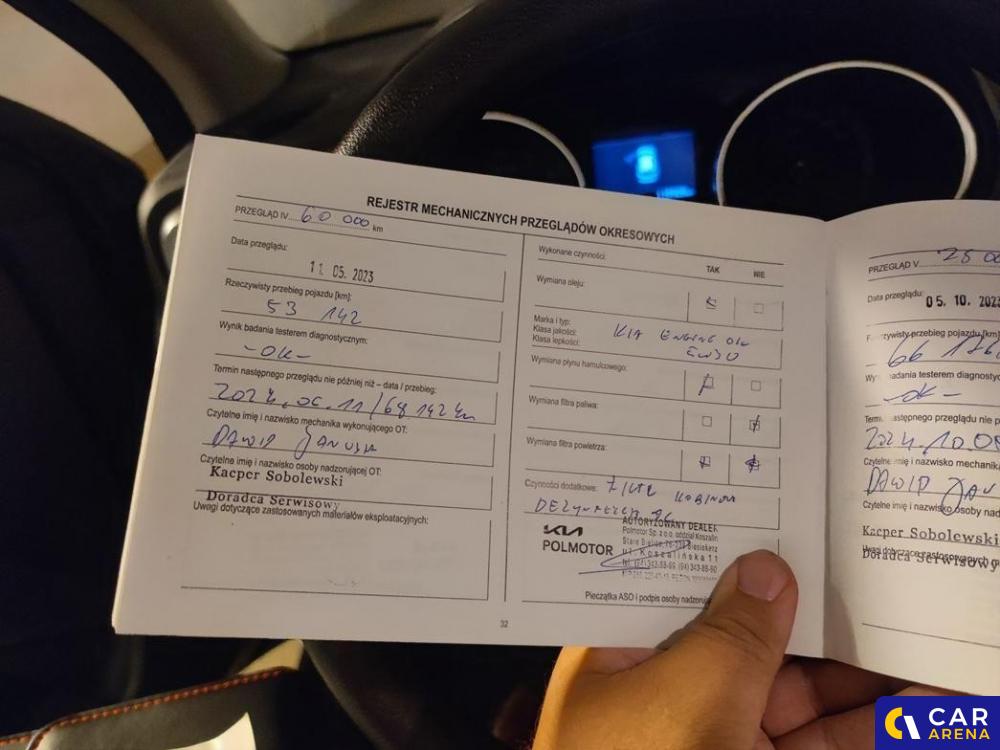 REJESTR MECHANICZNYCH PRZEGLĄDÓW OKRESOWYCH
PRZEGLĄD IV 60 000 km
Data przeglądu:
11 05. 2023
Rzeczywisty przebieg pojazdu [km]:
53 142
Wynik badania testerem diagnostycznym:
-OK-
Termin następnego przeglądu nie później niż – data / przebieg:
2024.05.11/68 142 km
Czytelne imię i nazwisko mechanika wykonującego OT:
DAWID JANUSIK
Czytelne imię i nazwisko osoby nadzorującej OT:
Kacper Sobolewski
Doradca Serwisowy
Uwagi dotyczące zastosowanych materiałów eksploatacyjnych:
Wykonane czynności:
TAK NIE
Wymiana oleju:
Marka i typ:
Klasa jakości:
Klasa lepkości:
KIA ENGINE OIL
5W30
Wymiana płynu hamulcowego:
Wymiana filtra paliwa:
Wymiana filtra powietrza:
Czynności dodatkowe: FILTR KABINOWY
KIA
POLMOTOR
AUTORYZOWANY DEALER
Polmotor Sp. z o.o. oddział Koszalin
ul. Koszalińska 11
Pieczątka ASO i podpis osoby
32
PRZEGLĄD V
Data przeglądu:
05. 10. 2023
przebieg pojazdu [km]
66 176
badania testerem
-OK-
następnego przeglądu nie
2024.10.05
imię i nazwisko mechanika
DAWID JAN
Czytelne imię i nazwisko osoby
Kacper Sobolewski
Doradca Serwisowy
CAR
ARENA